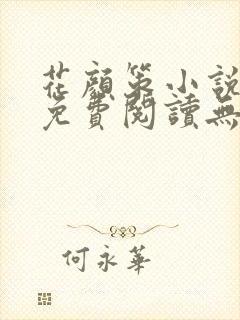 花顏策小說
免費閱讀無
何永華